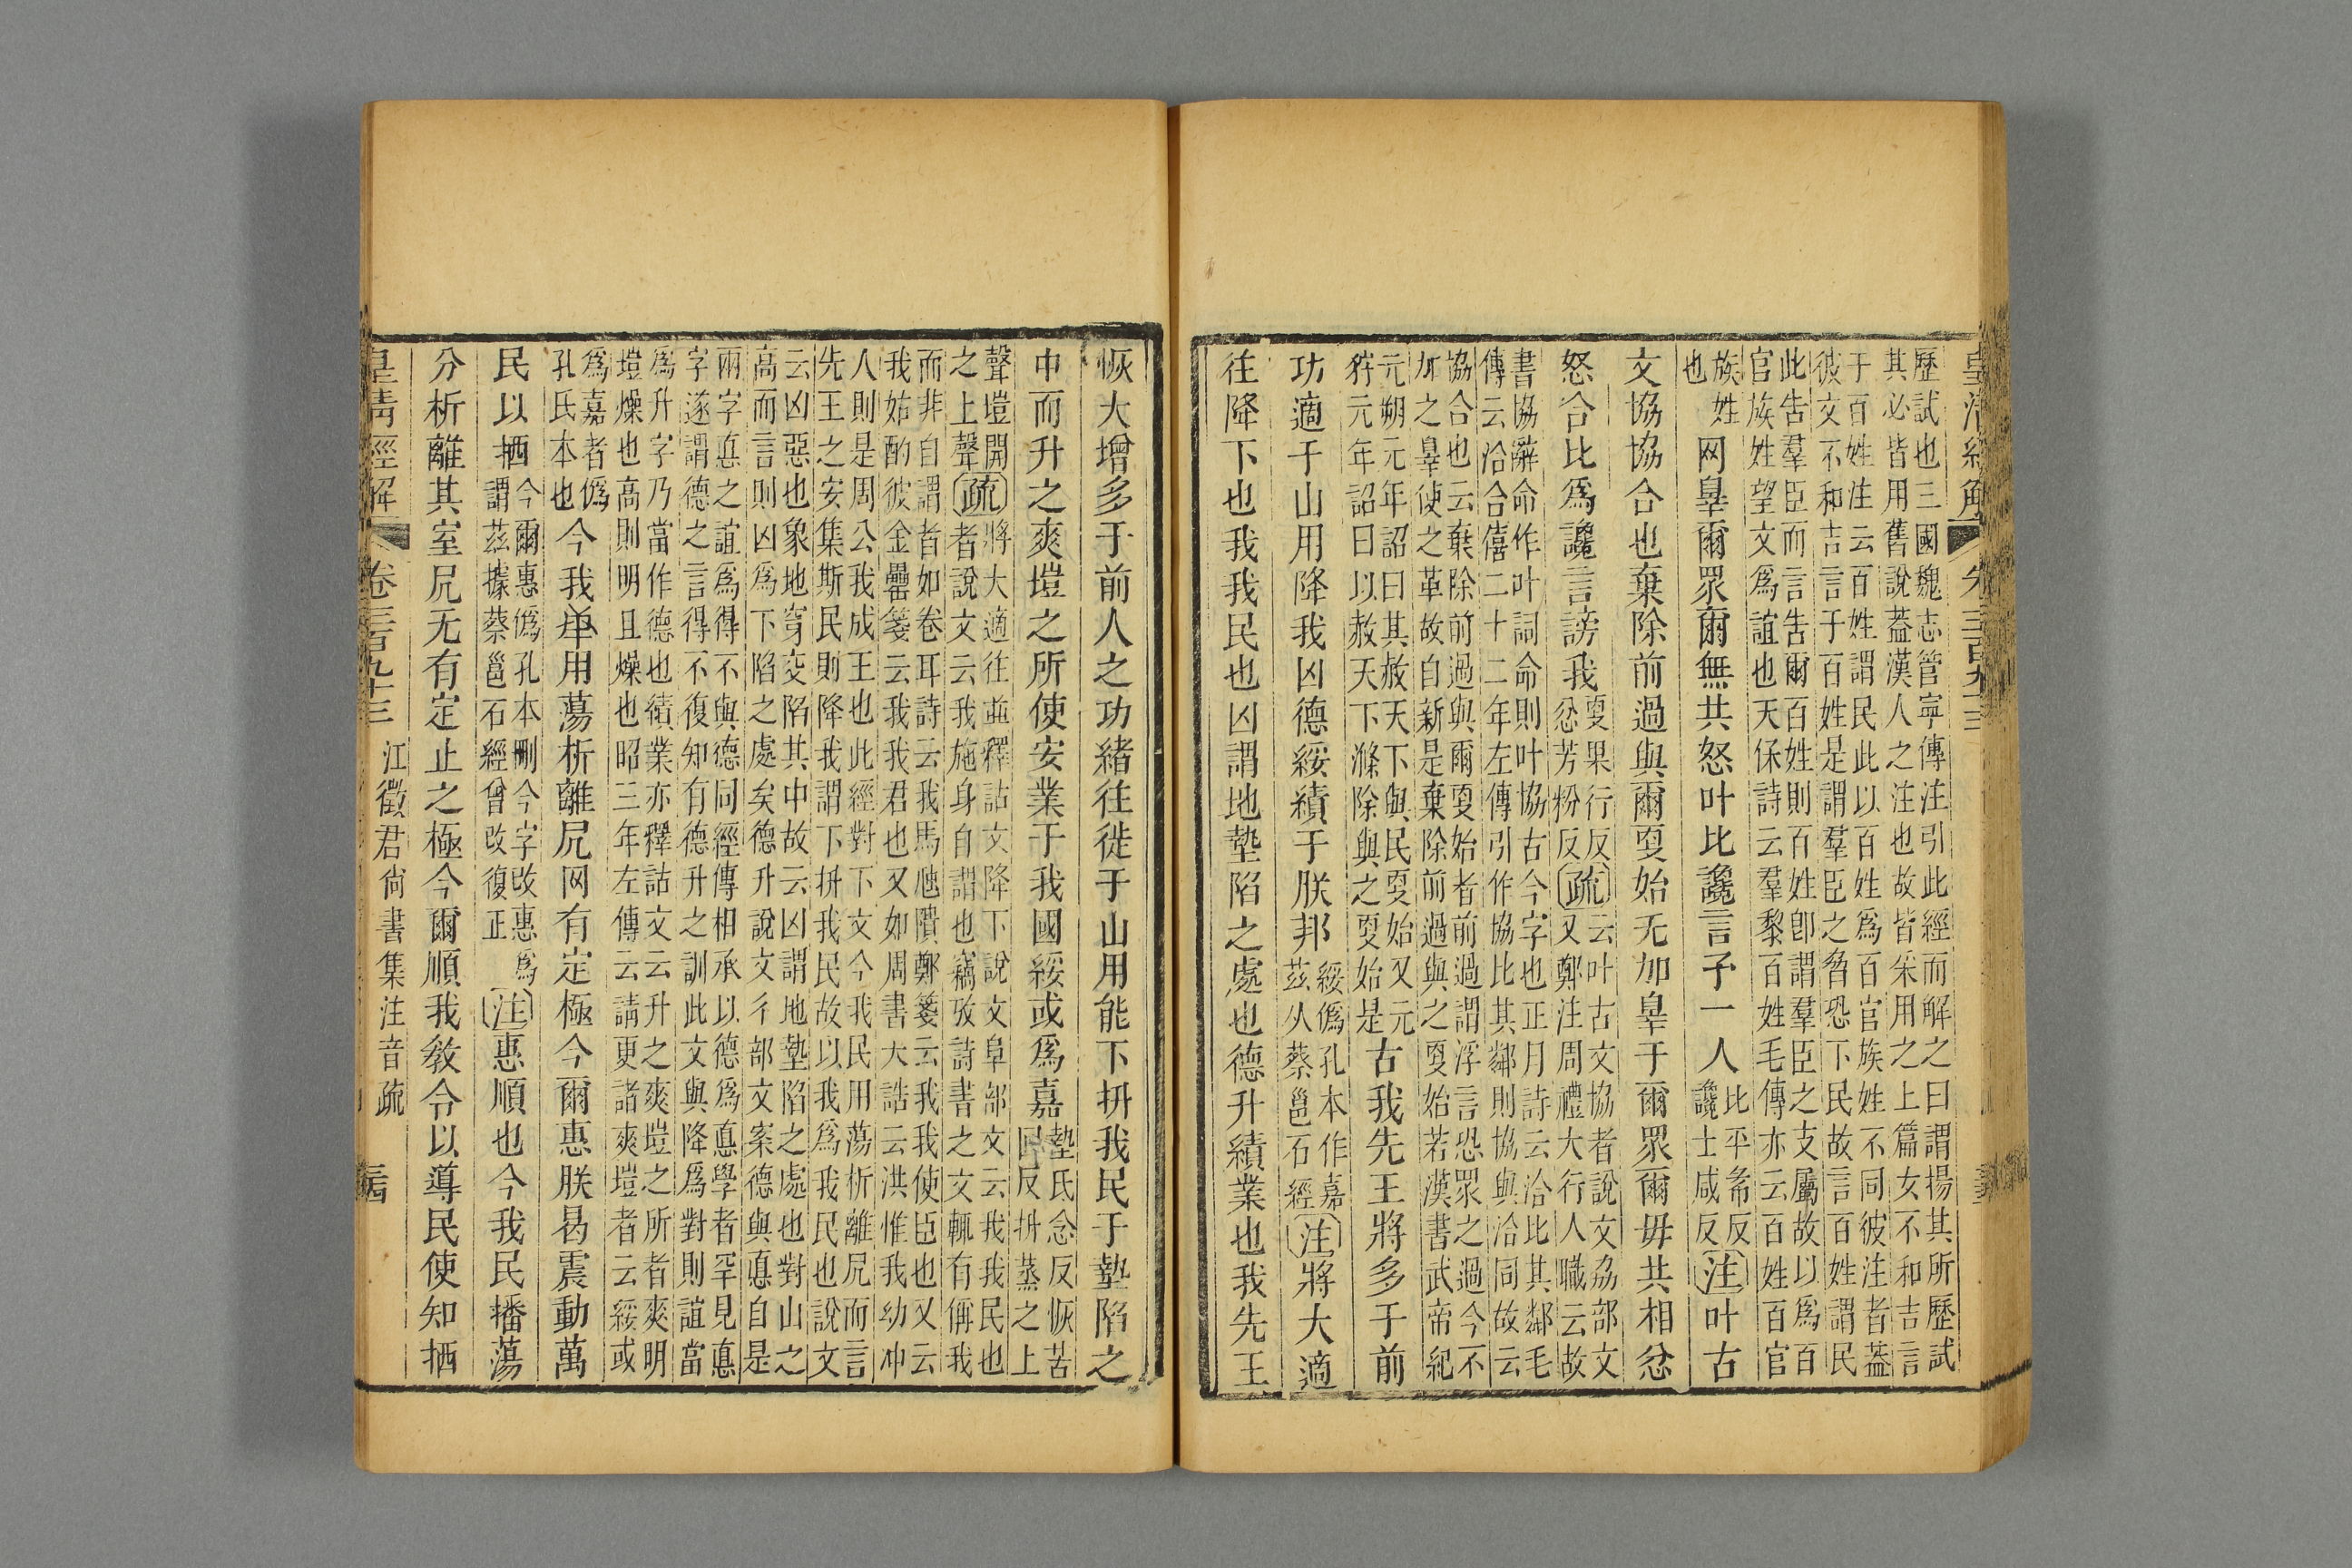 皇清經解 卷三百九十三
歷試也三國魏志管寧傳注引此經而解之曰謂揚其所歷試
其必皆用舊說葢漢人之注也故皆采用之上篇女不和吉言
于百姓注云百姓謂民此以百姓爲百官族姓不同彼注者葢
彼文不和吉言于百姓是謂羣臣之脅恐下民故言百姓謂民
此告羣臣而言告爾百姓則百姓卽謂羣臣之支屬故以爲百
官族姓望文爲誼也天保詩云羣黎百姓毛傳亦云百姓百官
族姓
也
网辠爾眾爾無共怒叶比讒言予一人
比平帋反
讒士咸反
注叶古
文協協合也棄除前過與爾更始无加辠于爾眾爾毋共相忿
怒合比爲讒言謗我
更果行反
忿芳粉反
疏
云叶古文協者說文劦部文
又鄭注周禮大行人職云故
書協辭命作叶詞命則叶協古今字也正月詩云洽比其鄰毛
傳云洽合僖二十二年左傳引作協比其鄰則協與洽同故云
協合也云棄除前過與爾更始者前過謂浮言恐眾之過今不
加之辠使之革故自新是棄除前過與之更始若漢書武帝紀
元朔元年詔曰其赦天下與民更始又元
狩元年詔曰以赦天下滌除與之更始是
古我先王將多于前
功適于山用降我凶德綏績于朕邦
綏僞孔本作嘉
茲从蔡邕石經
注將大適
往降下也我我民也凶謂地墊陷之處也德升績業也我先王
恢大增多于前人之功緒往徙于山用能下抍我民于墊陷之
中而升之爽塏之所使安業于我國綏或爲嘉
墊氏念反恢苦
回反抍蒸之上
聲塏開
之上聲
疏
將大適往竝釋詁文降下說文阜部文云我我民也
者說文云我施身自謂也竊攷詩書之文輒有偁我
而非自謂者如卷耳詩云我馬虺隤鄭箋云我我使臣也又云
我姑酌彼金罍箋云我我君也又如周書大誥云洪惟我幼冲
人則是周公我成王也此經對下文今我民用蕩析離凥而言
先王之安集斯民則降我謂下抍我民故以我爲我民也說文
云凶惡也象地穿交陷其中故云凶謂地墊陷之處也對山之
高而言則凶爲下陷之處矣德升說文彳部文案德與悳自是
兩字悳之誼爲得不與德同經傳相承以德爲悳學者罕見悳
字遂謂德之言得不復知有德升之訓此文與降爲對則誼當
爲升字乃當作德也績業亦釋詁文云升之爽塏之所者爽明
塏燥也高則明且燥也昭三年左傳云請更諸爽塏者云綏或
爲嘉者僞
孔氏本也
今我用蕩析離凥网有定極今爾惠朕曷震動萬
民以拪
今爾惠僞孔本刪今字改惠爲
謂茲據蔡邕石經曾改復正
注惠順也今我民播蕩
分析離其室凥无有定止之極今爾順我敎令以導民使知拪
皇清經解 卷三百九十三 江徵君尙書集注音疏